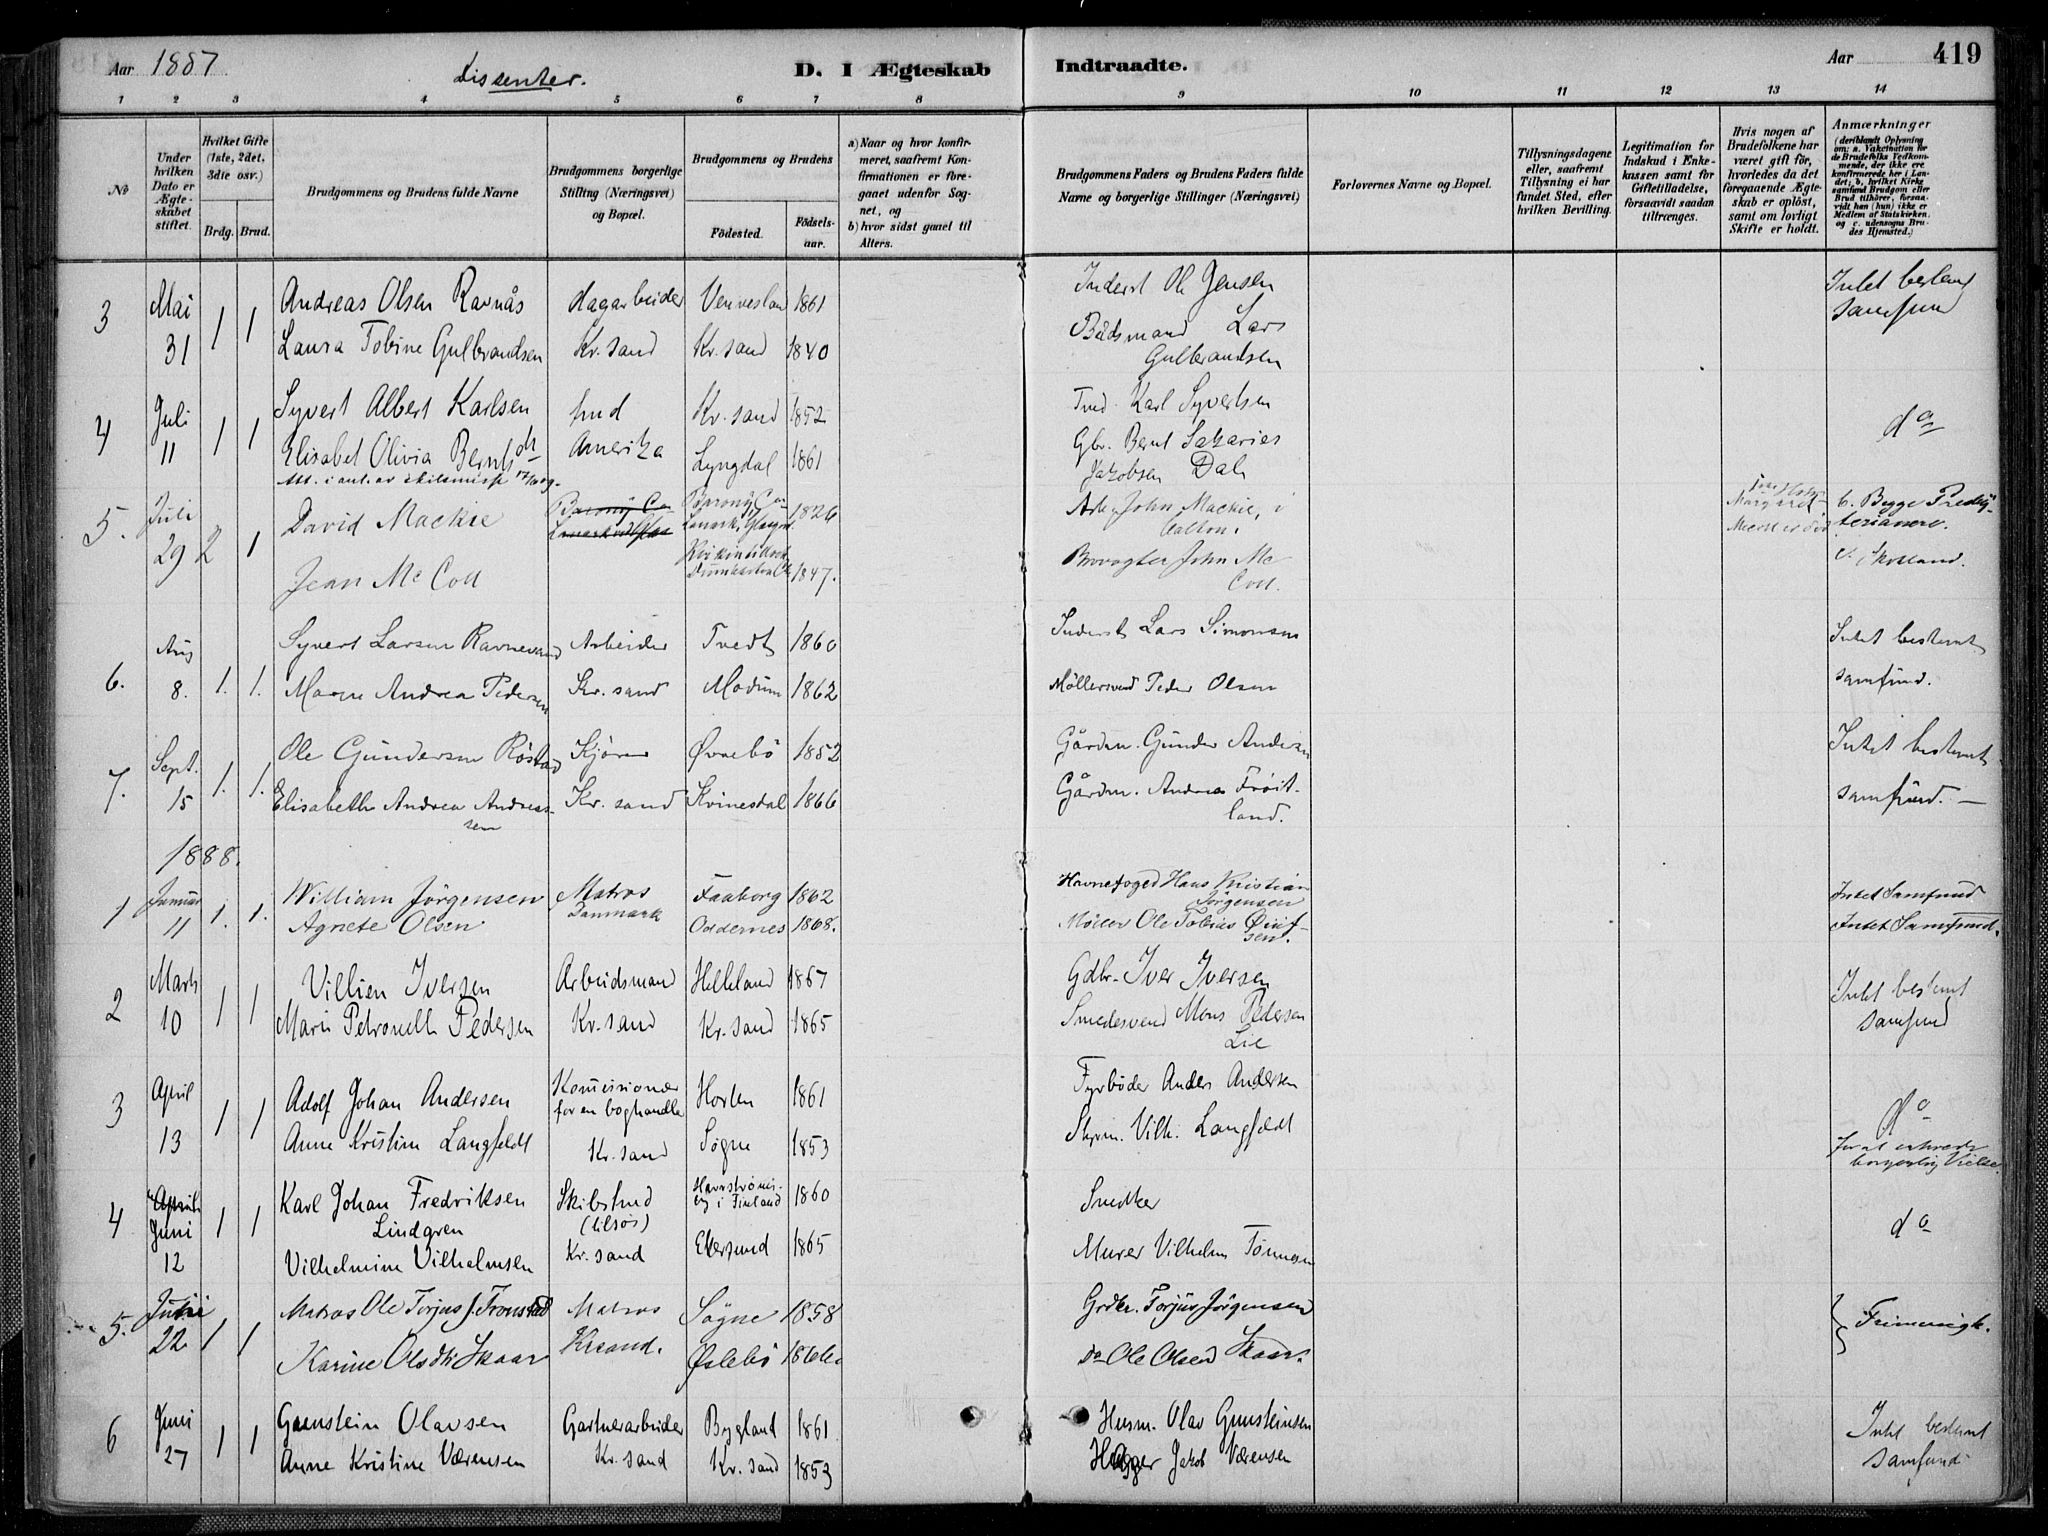 Aar 1887
Dissenter.
D. I Ægteskab Indtraadte.
Aar 419
1 2 3 4 5 6 7 8 9 10 11 12 13 14
No
Under hvilken Dato er Ægteskabet stiftet.
Hvilket Gifte (1ste, 2det, 3die osv.)
Brdg. Brud.
Brudgommens og Brudens fulde Navne
Brudgommens borgerlige Stilling (Næringsvei) og Bopæl.
Brudgommens og Brudens
Födested.
Födsels-aar.
a) Naar og hvor konfirmeret, saafremt Konfirmationen er foregaaet udenfor Sognet, og
b) hvor sidst gaaet til Alters.
Brudgommens Faders og Brudens Faders fulde Navne og borgerlige Stillinger (Næringsvei)
Forlovernes Navne og Bopæl.
Tillysningsdagene eller, saafremt Tillysning ei har fundet Sted, efter hvilken Bevilling.
Legitimation for Indskud i Enkekassen samt for Giftetilladelse, forsaavidt saadan tiltrænges.
Hvis nogen af Brudefolkene har været gift för, hvorledes da det foregaaende Ægteskab er oplöst, samt om lovligt Skifte er holdt.
Anmærkninger
(deriblandt Oplysning om: a. Vakcination for de Brudefolks Vedkommende, der ikke ere konfirmerede her i Landet; b. hvilket Kirkesamfund Brudgom eller Brud tilhörer, forsaavidt han (hun) ikke er Medlem af Statskirken, og c. udensogns Brudes Hjemsted.)
3 Mai 31 1 1 Andreas Olsen Ravnås dagarbeider Vennesland 1861 Inderst Ole Jensen Intet bestemt samfund
Laura Tobine Gulbrandsen Kr.sand Kr.sand 1840 Bådsmand Lars Gulbrandsen
4 Juli 11 1 1 Syvert Albert Karlsen Kr.sand 1852 Karl Syvertsen do
Elisabet Olivia Berntsdt Amerika Lyngdal 1861 Gbr. Bernt Sakarias Jakobsen Dal
5. Juli 29 2 1 David Mackie Barony, Lanark, Glasgow 1826 Arb. John Mackie, i Calton. b. Begge Presbyterianere.
Jean Mc Coll 1847. John Mc Coll. c. Skotland.
6. Aug 8. 1. 1. Syvert Larsen Ravnevand Arbeider Tvedt 1860 Inderst Lars Simonsen Intet bestemt samfund.
Maren Andrea Pedersen Kr.sand Modum 1862 Möllersvend Peder Olsen
7. Sept. 15 1. 1. Ole Gundersen Röstad Kjörer Øvrebö 1852 Gårdm. Gunder Andersen Intet bestemt samfund. —
Elisabeth Andrea Andreassen Kr.sand Kvinesdal 1866 Gårdm. Andreas Fröitland.
1888.
1 Januar 11 1. 1. William Jörgensen Matros Danmark Faaborg 1862 Havnefoged Hans Kristian Jörgensen Intet Samfund
Agnete Olsen Oddernes 1868. Möller Ole Tobias Intet Samfund.
2 Marts 10 1 1 Villien Iversen Arbeidsmand Helleland 1867 Gdbr. Iver Iversen Intet bestemt samfund
Marie Petronelle Pedersen Kr.sand Kr.sand 1865 Smedesvend Mons Pedersen Lie
3 April 13 1 1 Adolf Johan Andersen Komissionær for en boghandler Horten 1861 Fyrböder Anders Andersen do
Anne Kristine Langfeldt Kr.sand Sögne 1853 Vilh. Langfeldt
4 April Juni 12 1 1 Karl Johan Fredriksen Lindgren (tilsös) Finland 1860 do
Vilhelmine Vilhelmsen Kr.sand Ekersund 1865 Murer Vilhelm Tönnesen
5. Juni 22 1 1 Matros Ole Torjus J. Tronstad Matros Sögne 1858 Grdbr. Torjus Jörgensen Frimenigh.
Karine Olsdtr Skaar Krsand. Øslebö 1866 Do Ole Olsen Skaar.
6 Juni 27 1 1 Gunstein Olavsen Gartnerarbeider Bygland 1861 Husm. Olav Gunsteinsen Intet bestemt samfund
Anne Kristine Værensen Kr.sand Kr.sand 1853 Jakob Værensen